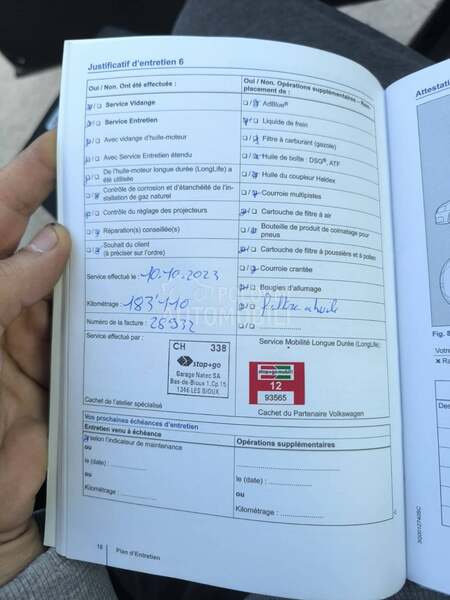 Justificatif d'entretien 6
Attesta
Oui / Non. Ont été effectués :
☐/☐ Service Vidange
☐/☐ Service Entretien
☐/☐ Avec vidange d'huile-moteur
☐/☐ Avec Service Entretien étendu
☐/☐ De l'huile-moteur longue durée (LongLife) a
été utilisée
☐/☐ Contrôle de corrosion et d'étanchéité de l'in-
stallation de gaz naturel
☐/☐ Contrôle du réglage des projecteurs
☐/☐ Réparation(s) conseillée(s)
☐/☐ Souhait du client
(à préciser sur l'ordre)
Service effectué le : 10.10.2023
Kilométrage : 183'110
Numéro de la facture : 28932
Oui / Non. Opérations supplémentaires – Rem-
placement de :
☐/☐ AdBlue®
☐/☐ Liquide de frein
☐/☐ Filtre à carburant (gazole)
☐/☐ Huile de boîte : DSG®, ATF
☐/☐ Huile du coupleur Haldex
☐/☐ Courroie multipistes
☐/☐ Cartouche de filtre à air
☐/☐ Bouteille de produit de colmatage pour
pneus
☐/☐ Cartouche de filtre à poussière et à pollen
☐/☐ Courroie crantée
☐/☐ Bougies d'allumage
☐/☐ filtre a huile
Service effectué par :
CH 338
stop+go
Garage Natec SA
Bas-de-Bioux 1, Cp.15
1346 LES BIOUX
Cachet de l'atelier spécialisé
Service Mobilité Longue Durée (LongLife):
12
93565
Cachet du Partenaire Volkswagen
Vos prochaines échéances d'entretien
Entretien venu à échéance
☐ selon l'indicateur de maintenance
ou
le (date) :
ou
Kilométrage :
Opérations supplémentaires
ou
le (date) :
ou
Kilométrage :
18 Plan d'Entretien
Fig. 8
Votre
Ra
Des